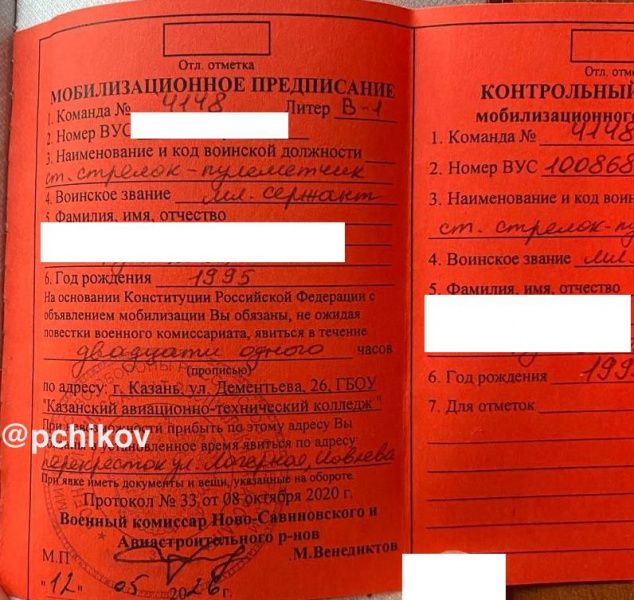 Отл. отметка
МОБИЛИЗАЦИОННОЕ ПРЕДПИСАНИЕ
1. Команда № 4148 Литер В-1
2. Номер ВУС
3. Наименование и код воинской должности
ст. стрелок-пулеметчик
4. Воинское звание мл. сержант
5. Фамилия, имя, отчество
6. Год рождения 1995
На основании Конституции Российской Федерации с
объявлением мобилизации Вы обязаны, не ожидая
повестки военного комиссариата, явиться в течение
двадцати одного часов
(прописью)
по адресу: г. Казань, ул. Дементьева, 26, ГБОУ
"Казанский авиационно-технический колледж"
При невозможности прибыть по этому адресу Вы
в установленное время явиться по адресу
перекресток ул. Лагерная, Ловлева
При явке иметь документы и вещи, указанные на обороте
Протокол № 33 от 08 октября 2020 г.
Военный комиссар Ново-Савиновского и
Авиастроительного р-нов
М.П М.Венедиктов
"12" 05 2026 г.
@pchikov
Отл. отме
КОНТРОЛЬНЫЙ
мобилизационного
1. Команда № 4148
2. Номер ВУС 100868
3. Наименование и код воин
ст. стрелок-пу
4. Воинское звание мл.
5. Фамилия, имя, отчество
6. Год рождения 199
7. Для отметок